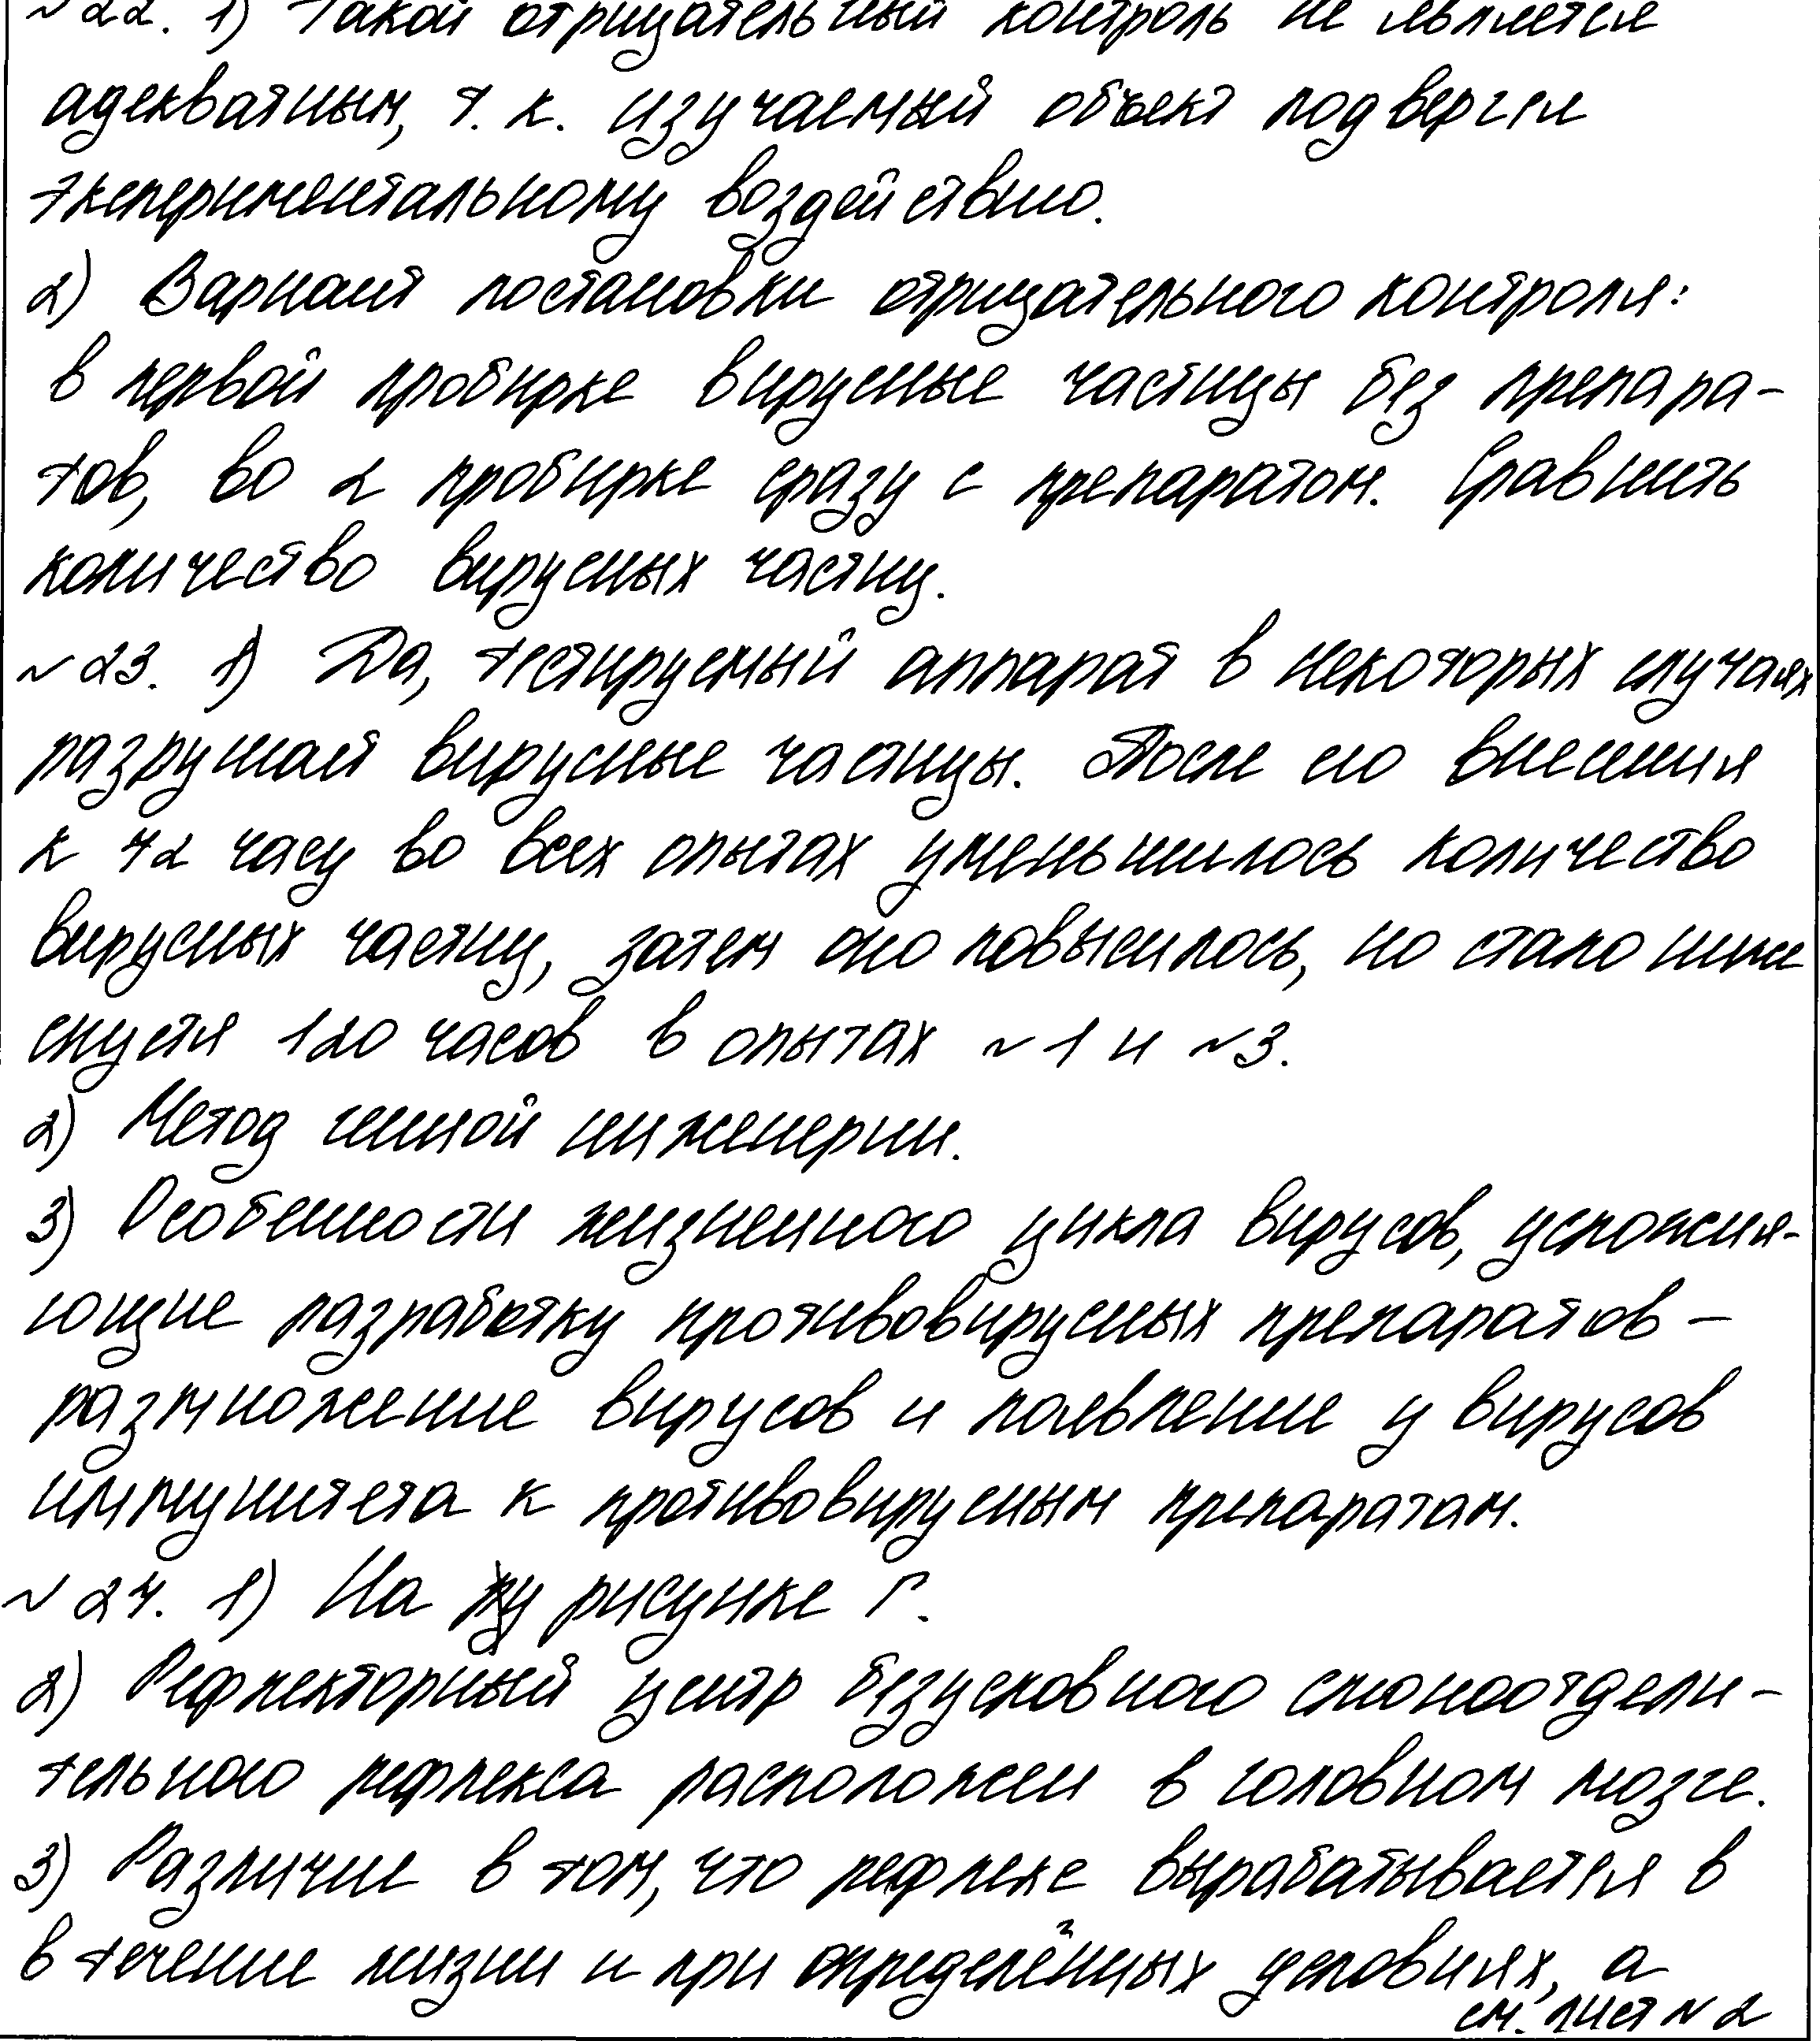 №22. 1) Такой отрицательный контроль не является
адекватным, т. к. изучаемый объект подвергся
экспериментальному воздействию.
2) Вариант постановки отрицательного контроля:
в первой пробирке вирусные частицы без препара-
тов, во 2 пробирке сразу с препаратом. Сравнить
количество вирусных частиц.
№23. 1) Да, тестируемый аппарат в некоторых случаях
разрушает вирусные частицы. После его внесения
к 72 часу во всех опытах уменьшилось количество
вирусных частиц, затем оно повысилось, но стало ниже
спустя 120 часов в опытах №1 и №3.
2) Метод генной инженерии.
3) Особенности жизненного цикла вирусов, усложня-
ющие разработку противовирусных препаратов –
размножение вирусов и появление у вирусов
иммунитета к противовирусным препаратам.
№24. 1) На рисунке Г.
2) Рефлекторный центр безусловного слюноотдели-
тельного рефлекса расположен в головном мозге.
3) Различие в том, что рефлекс вырабатывается в
в течение жизни и при определённых условиях, а
см. лист №2